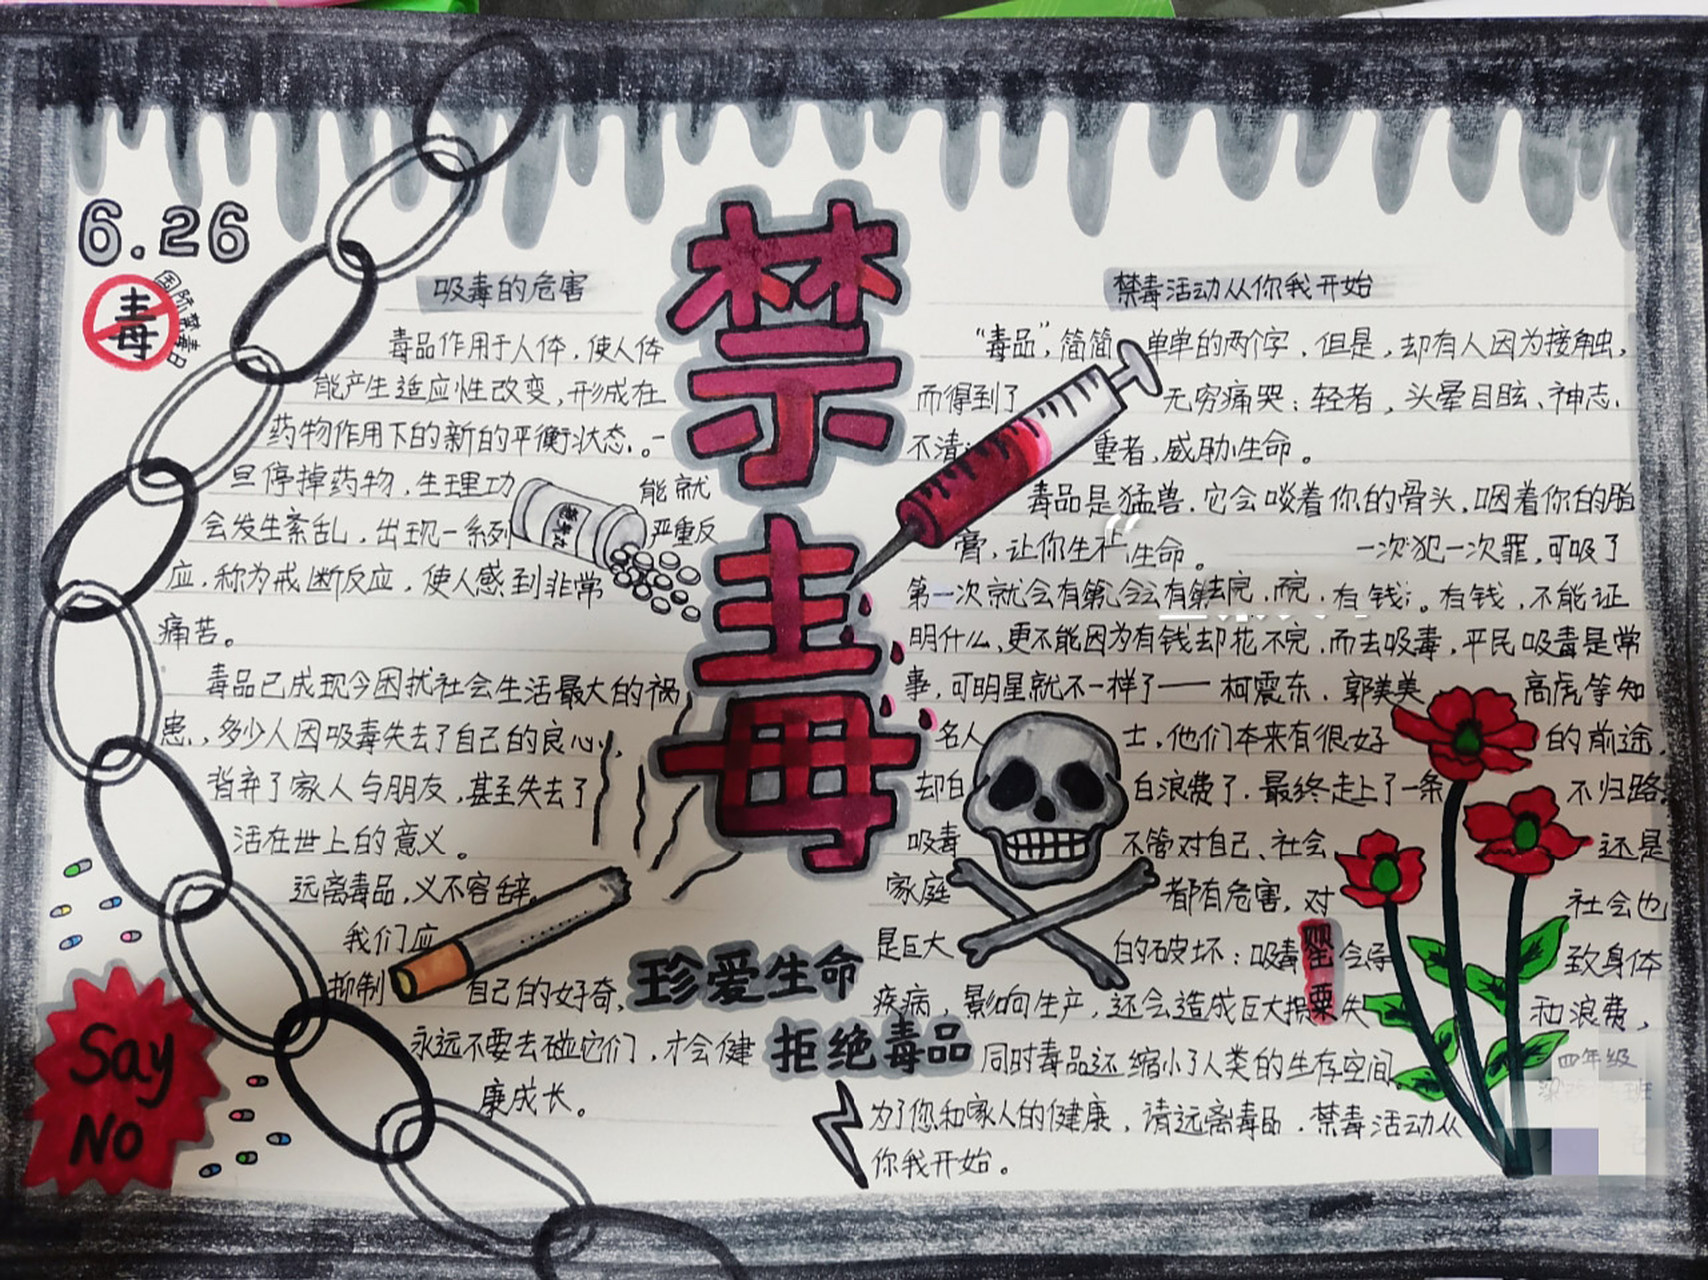 6.26
毒
国际禁毒日
禁毒
吸毒的危害
毒品作用于人体,使人体
能产生适应性改变,形成在
药物作用下的新的平衡状态.。一
旦停掉药物,生理功能就
会发生紊乱,出现一系列严重反
应,称为戒断反应,使人感到非常
痛苦。
毒品已成现今困扰社会生活最大的祸
患,多少人因吸毒失去了自己的良心,
背弃了家人与朋友,甚至失去了
活在世上的意义。
远离毒品,义不容辞。
我们应
抑制自己的好奇,
永远不要去碰它们,才会健
康成长。
Say
No
珍爱生命
拒绝毒品
禁毒活动从你我开始
“毒品”,简简单单的两个字,但是,却有人因为接触,
而得到了无穷痛哭:轻者,头晕目眩、神志
不清;重者,威胁生命。
毒品是猛兽.它会啖着你的骨头,咽着你的脂
膏,让你生不生命。一次犯一次罪,可吸了
第一次就会有第
有钱。有钱,不能证
明什么,更不能因为有钱却花不完,而去吸毒,平民吸毒是常
事,可明星就不一样了——柯震东、郭美美高虎等知
名人士,他们本来有很好的前途,
却白白浪费了.最终走上了一条不归路
吸毒不管对自己、社会还是
家庭都有危害,对社会也
是巨大的破坏:吸毒会导致身体
疾病,影响生产,还会造成巨大损失和浪费,
同时毒品还缩小了人类的生存空间
为了您和家人的健康,请远离毒品.禁毒活动从
你我开始。
罂粟
四年级
班